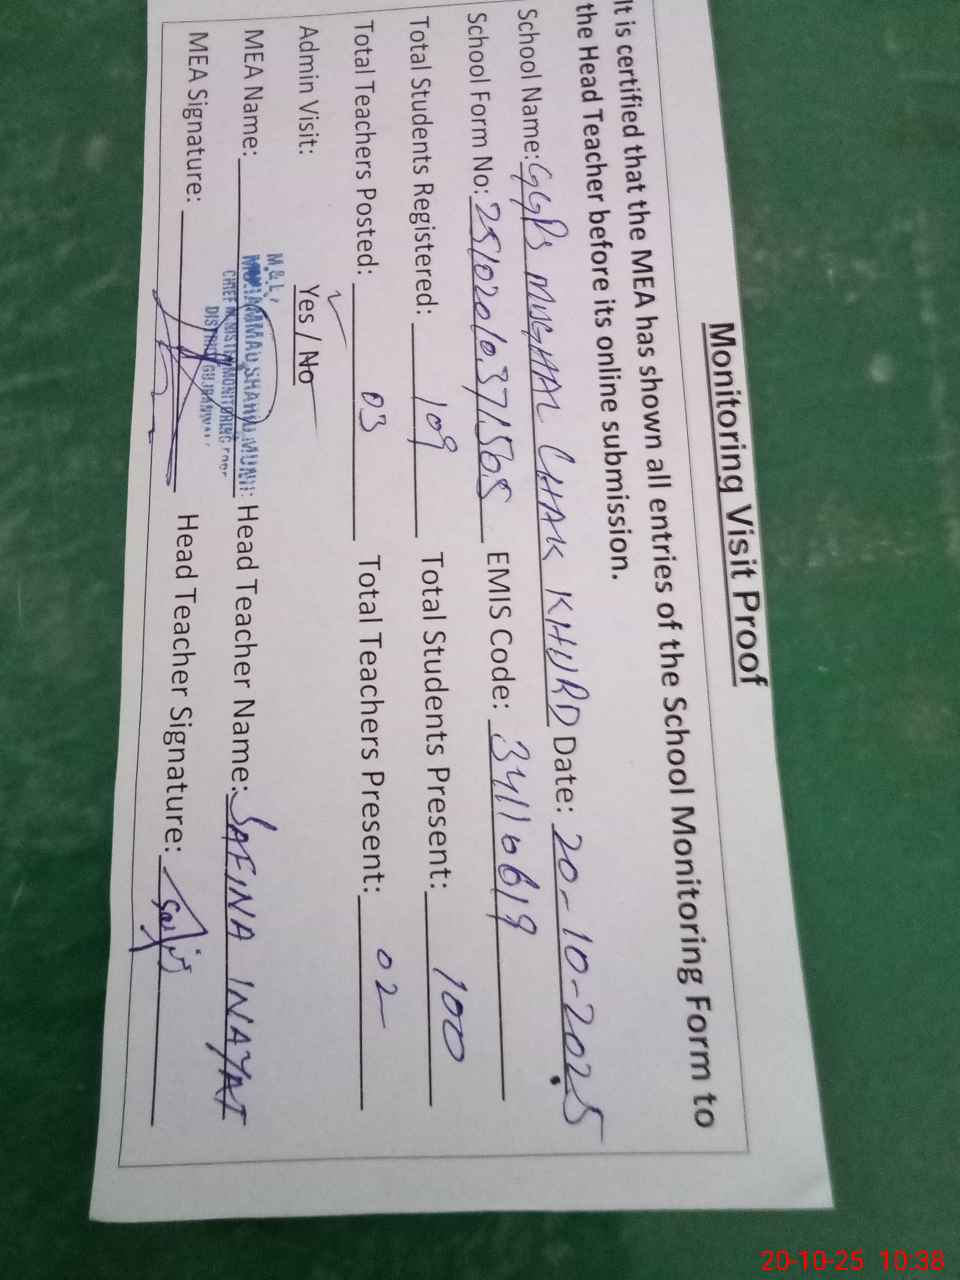 Monitoring Visit Proof
It is certified that the MEA has shown all entries of the School Monitoring Form to
the Head Teacher before its online submission.
School Name: GGPS MUGHAL CHAK KHURD Date: 20-10-2025
School Form No: EMIS Code: 34110619
Total Students Registered: 109 Total Students Present: 100
Total Teachers Posted: 03 Total Teachers Present: 02
Admin Visit: Yes / No
M.&.E,
MEA Name: Head Teacher Name: SAFINA INAYAT
CHIEF MONITORING
DISTRICT
MEA Signature: Head Teacher Signature:
20-10-25 10:38